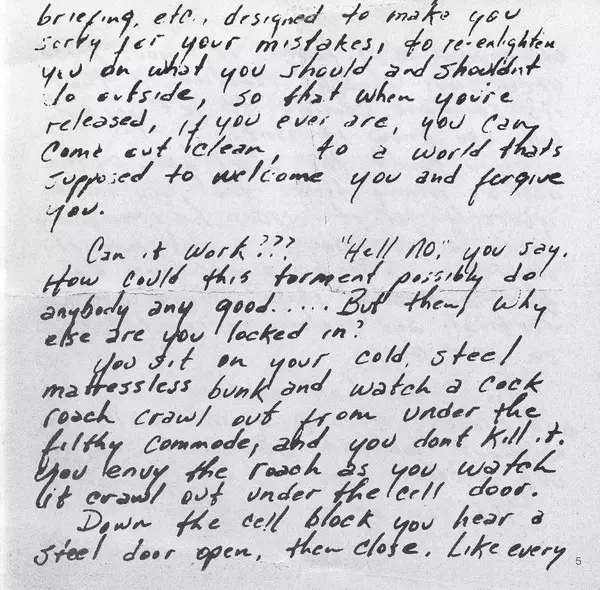 briefing, etc., designed to make you
sorry for your mistakes, to re-enlighten
you on what you should and shouldnt
do outside, so that when you're
released, if you ever are, you can
come out clean, to a world thats
supposed to welcome you and forgive
you.
Can it work??? "Hell NO," you say.
How could this torment possibly do
anybody any good..... But then, why
else are you locked in?
You sit on your cold, steel
mattressless bunk and watch a cock
roach crawl out from under the
filthy commode, and you dont kill it.
You envy the roach as you watch
it crawl out under the cell door.
Down the cell block you hear a
steel door open, then close. Like every
5